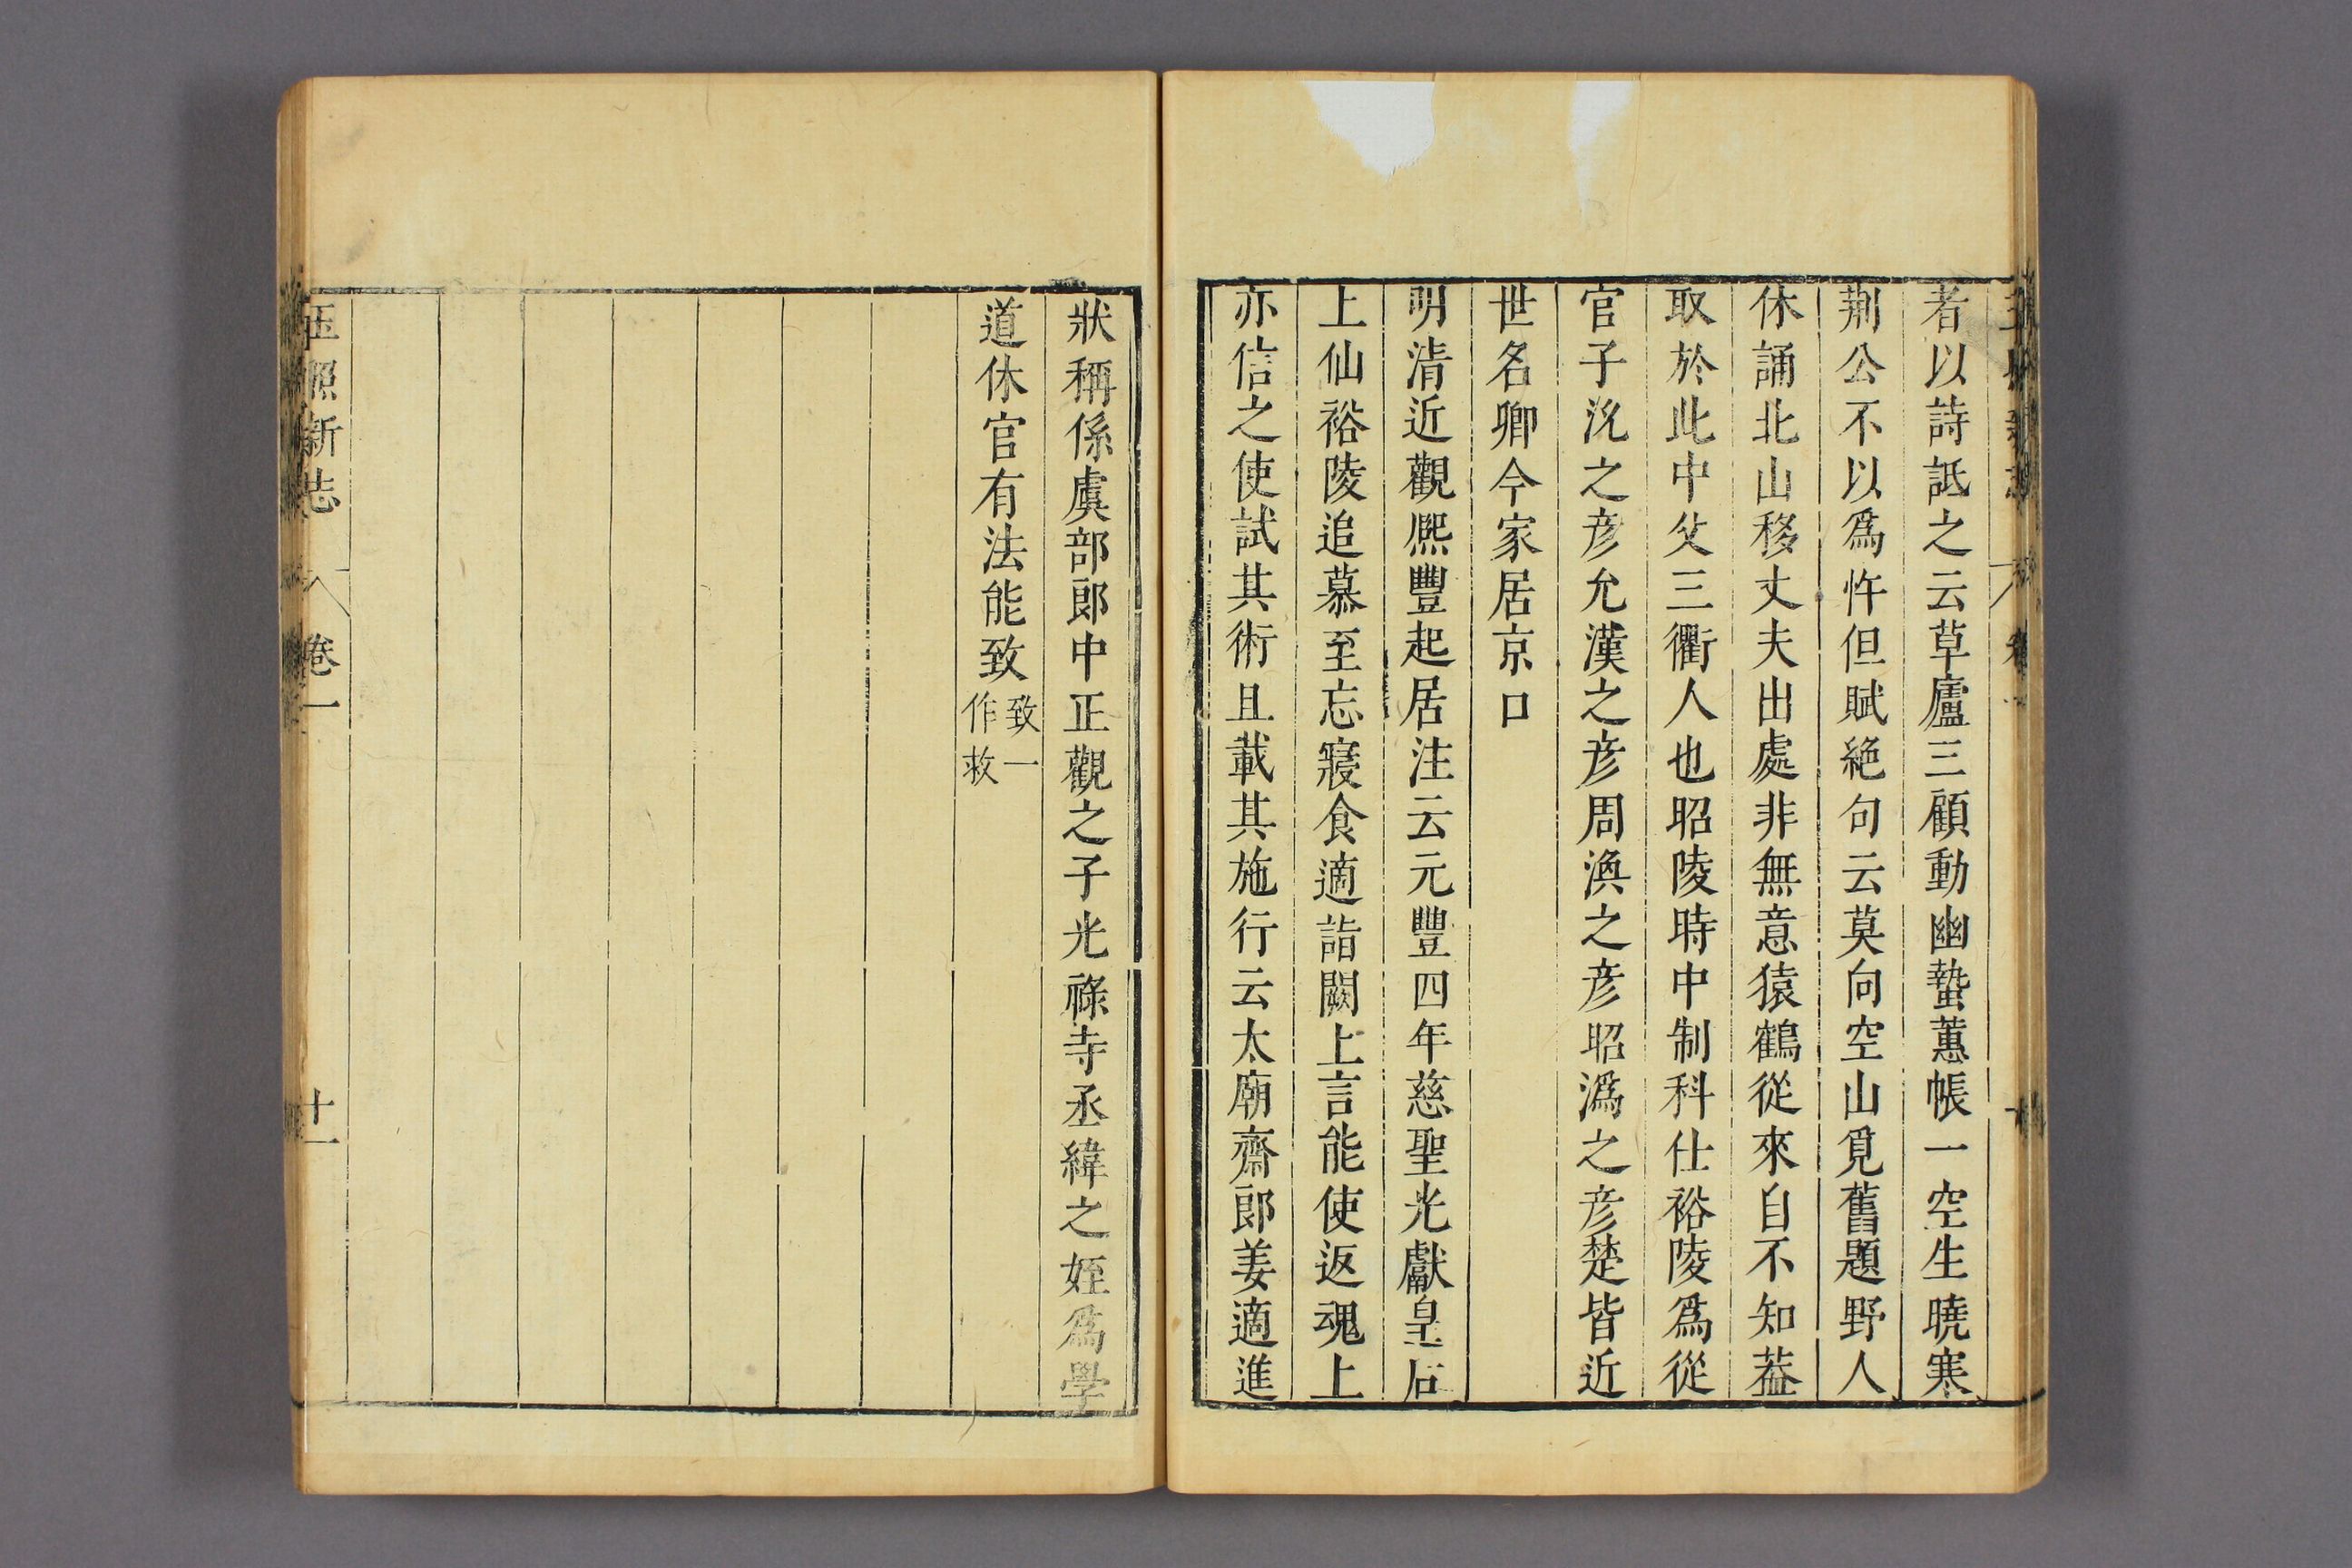 者以詩詆之云草廬三顧動幽蟄蕙帳一空生曉寒
荆公不以爲忤但賦絶句云莫向空山覓舊題野人
休誦北山移丈夫出處非無意猿鶴從來自不知葢
取於此中父三衢人也昭陵時中制科仕裕陵爲從
官子沇之彦允漢之彦周渙之彦昭潙之彦楚皆近
世名卿今家居京口
明清近觀熈豐起居注云元豐四年慈聖光獻皇后
上仙裕陵追慕至忘寢食適詣闕上言能使返魂上
亦信之使試其術且載其施行云太廟齋郎姜適進
狀稱係虞部郎中正觀之子光祿寺丞緯之姪爲學
道休官有法能致致一作救
玉照新志 卷一 十一